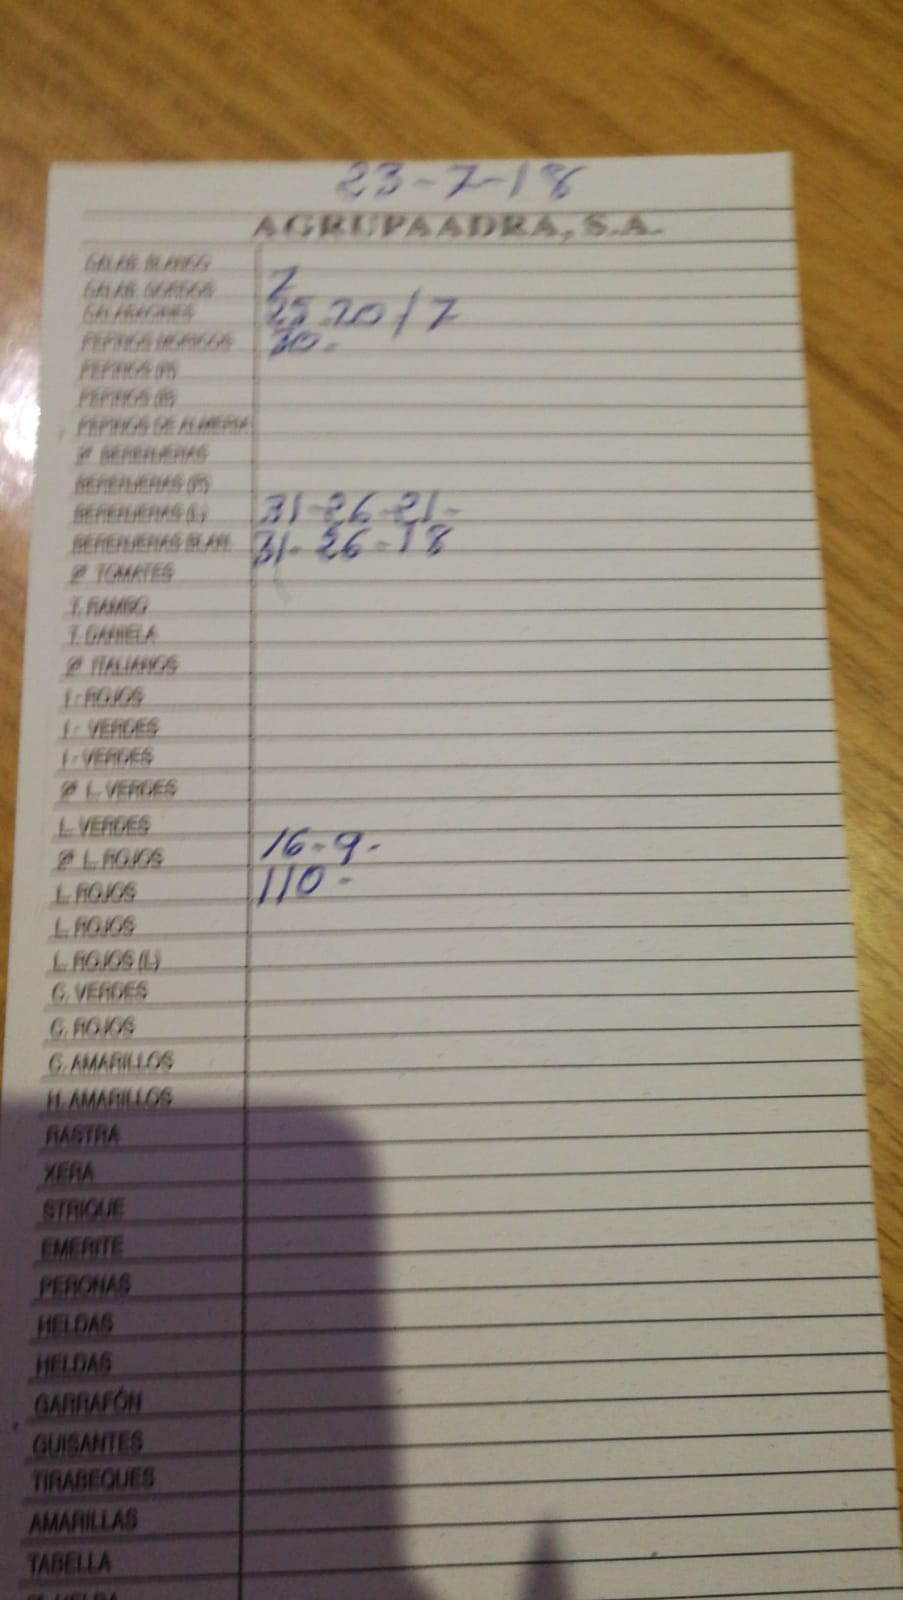 23-7-18
AGRUPAADRA, S.A.
CALAB. BLANCO
CALAB. GORDOS 7
CALABACINES 25-20/7
PEPINOS MORICOS 30-
PEPINOS (A)
PEPINOS (B)
PEPINOS DE ALMERIA
2ª BERENJENAS
BERENJENAS (R)
BERENJENAS (L) 31-26-21-
BERENJENAS BLAN. 31-26-18
2ª TOMATES
T. RAMBO
T. DANIELA
2ª ITALIANOS
I - ROJOS
I - VERDES
I - VERDES
2ª L. VERDES
L. VERDES
2ª L. ROJOS 16-9-
L. ROJOS 110-
L. ROJOS
L. ROJOS (L)
C. VERDES
C. ROJOS
C. AMARILLOS
H. AMARILLOS
RASTRA
XERA
STRIQUE
EMERITE
PERONAS
HELDAS
HELDAS
GARRAFÓN
GUISANTES
TIRABEQUES
AMARILLAS
TABELLA